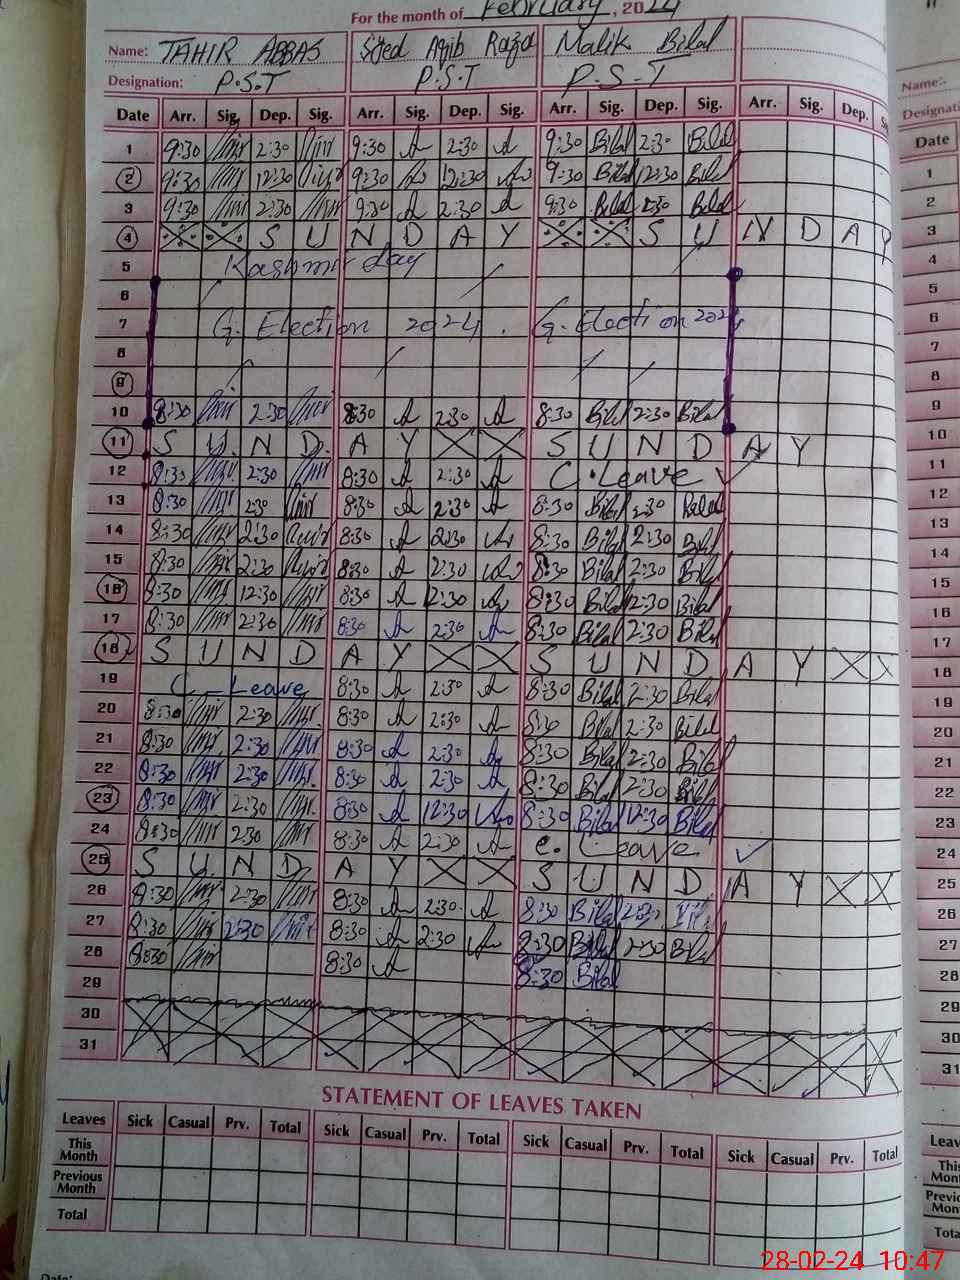 For the month of February, 2024
Name: TAHIR ABBAS Syed Aqib Raza Malik Bilal
Designation: P.S.T P.S.T P.S.T
Date Arr. Sig. Dep. Sig. Arr. Sig. Dep. Sig. Arr. Sig. Dep. Sig. Arr. Sig. Dep.
1 9:30 2:30 9:30 2:30 9:30 Bilal 2:30 Bilal
2 9:30 12:30 9:30 12:30 9:30 Bilal 12:30 Bilal
3 9:30 2:30 9:30 2:30 9:30 Bilal 2:30 Bilal
4 S U N D A Y S U N D A Y
5 Kashmir day
6
7 G. Election 2024. G. Election 2024
8
9
10 8:30 2:30 8:30 2:30 8:30 Bilal 2:30 Bilal
11 S U N D A Y S U N D A Y
12 8:30 2:30 8:30 2:30 C. Leave
13 8:30 2:30 8:30 2:30 8:30 Bilal 2:30 Bilal
14 8:30 2:30 8:30 2:30 8:30 Bilal 2:30 Bilal
15 8:30 2:30 8:30 2:30 8:30 Bilal 2:30 Bilal
16 8:30 12:30 8:30 12:30 8:30 Bilal 12:30 Bilal
17 8:30 2:30 8:30 2:30 8:30 Bilal 2:30 Bilal
18 S U N D A Y S U N D A Y
19 C. Leave 8:30 2:30 8:30 Bilal 2:30 Bilal
20 8:30 2:30 8:30 2:30 8:30 Bilal 2:30 Bilal
21 8:30 2:30 8:30 2:30 8:30 Bilal 2:30 Bilal
22 8:30 2:30 8:30 2:30 8:30 Bilal 2:30 Bilal
23 8:30 2:30 8:30 12:30 8:30 Bilal 12:30 Bilal
24 8:30 2:30 8:30 2:30 C. Leave
25 S U N D A Y S U N D A Y
26 8:30 2:30 8:30 2:30 8:30 Bilal 2:30
27 8:30 2:30 8:30 2:30 8:30 Bilal 2:30 Bilal
28 8:30 8:30 8:30 Bilal
29
30
31
STATEMENT OF LEAVES TAKEN
Leaves Sick Casual Prv. Total Sick Casual Prv. Total Sick Casual Prv. Total Sick Casual Prv. Total
This Month
Previous Month
Total
Name:
Date
1
2
3
4
5
6
7
8
9
10
11
12
13
14
15
16
17
18
19
20
21
22
23
24
25
26
27
28
29
30
31
28-02-24 10:47